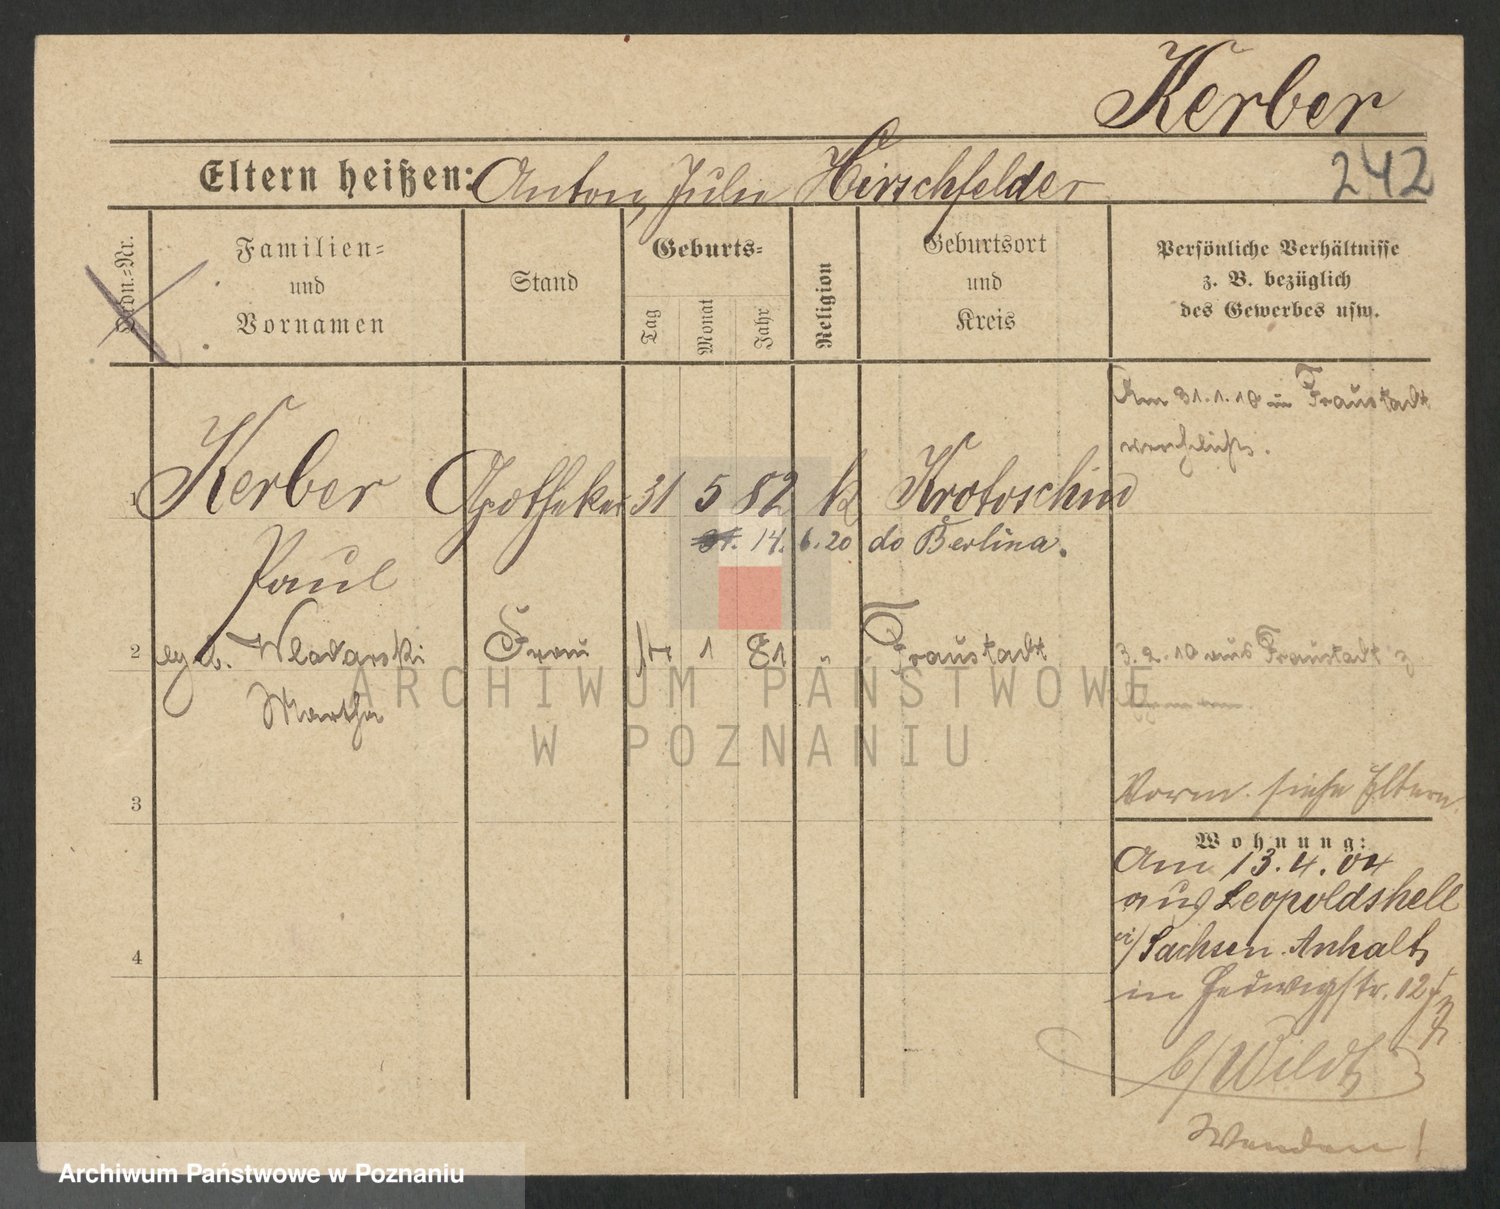 Kerber
Eltern heißen: Anton, Julie Hirschfelder
242
Srdn.-Nr.
Familien-
und
Vornamen
Stand
Geburts-
Tag
Monat
Jahr
Religion
Geburtsort
und
Kreis
Persönliche Verhältnisse
z. B. bezüglich
des Gewerbes usw.
Am 31.1.10 in Fraustadt
verehelicht.
1 Kerber Apotheker 31 5 82 k Krotoschin
14. 6.20 do Berlina.
Paul
2 geb. Wlodarski Frau 1 81 Fraustadt
3.2.10 aus Fraustadt
Martha
ARCHIWUM PAŃSTWOWE
W POZNANIU
3
Vorm. siehe Eltern
Wohnung:
Am 13.4.04
aus Leopoldshell
i/ Sachsen Anhalt
4
in Hedwigstr. 12
b/ Wildt
Wenden!
Archiwum Państwowe w Poznaniu